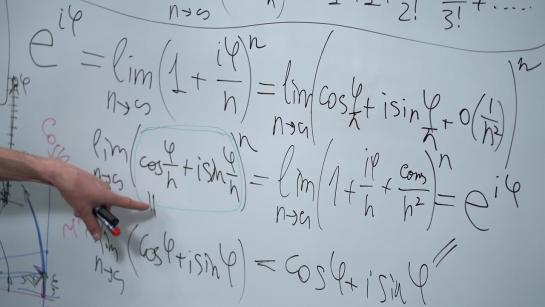 n→∞ 2! 3! + .....
e^{iφ} = lim_{n→∞} (1 + iφ/n)^n = lim_{n→∞} (cos φ/n + i sin φ/n + o(1/n²))^n
lim_{n→∞} (cos φ/n + i sin φ/n)^n = lim_{n→∞} (1 + iφ/n + cons/n²)^n = e^{iφ}
lim_{n→∞} (cos φ + i sin φ) = cos φ + i sin φ